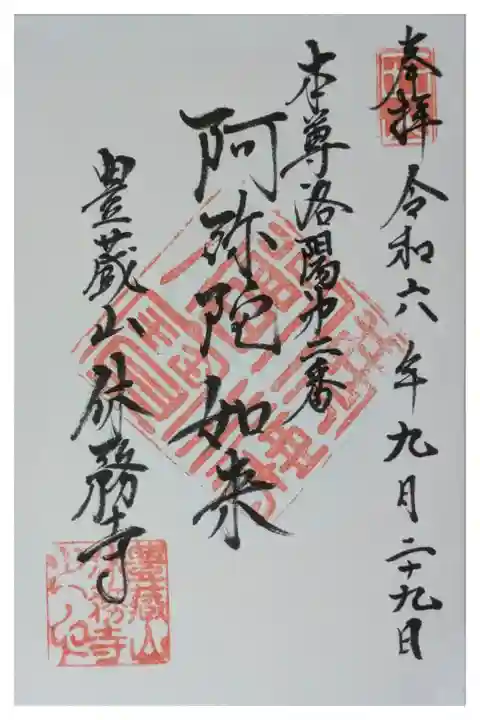 奉拝 令和六年九月二十九日
本尊洛陽第二番
阿弥陀如来
豊蔵山休務寺
豊蔵山
休務寺